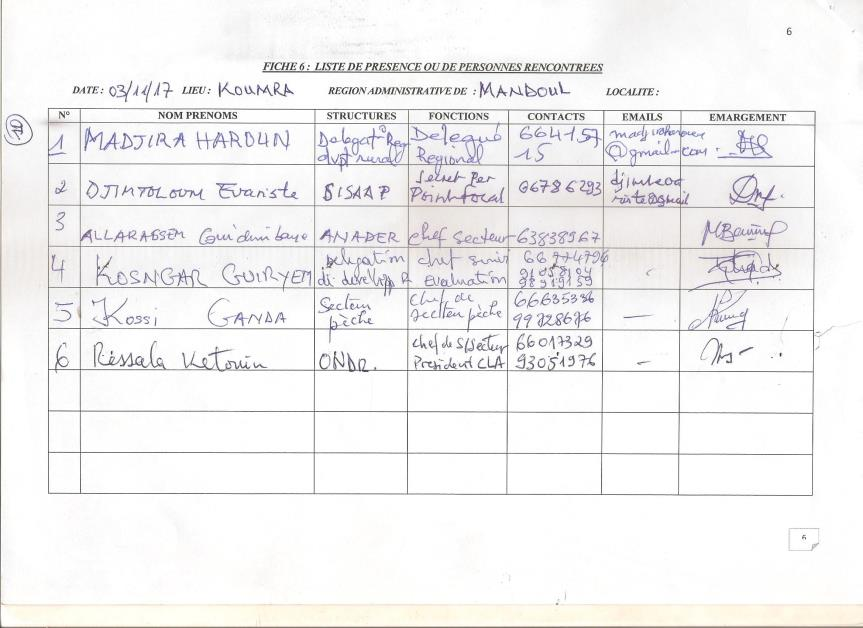 6
FICHE 6 : LISTE DE PRESENCE OU DE PERSONNES RENCONTREES
DATE : 03/11/17 LIEU : KOUMRA REGION ADMINISTRATIVE DE : MANDOUL LOCALITE :
N° NOM PRENOMS STRUCTURES FONCTIONS CONTACTS EMAILS EMARGEMENT
1 MADJIRA HAROUN Delegat° Reg dvpt rural Delegué Regional 664157 15 @gmail.com
2 DJIMTOLOUM Evariste BISAAP Secret Per Point Focal 66786293
3 ALLARASSEM Guidimbaye ANADER chef secteur 63838967
4 KOSNGAR GUIRYEM Delegation du develop R chef suivi evaluation 66774796 98919159
5 Kossi GANDA Secteur pêche chef de secteur pêche 66635386 99728676 —
6 Réssala Ketouin ONDR. chef de S/Secteur President CLA 66017329 93051976 —
6